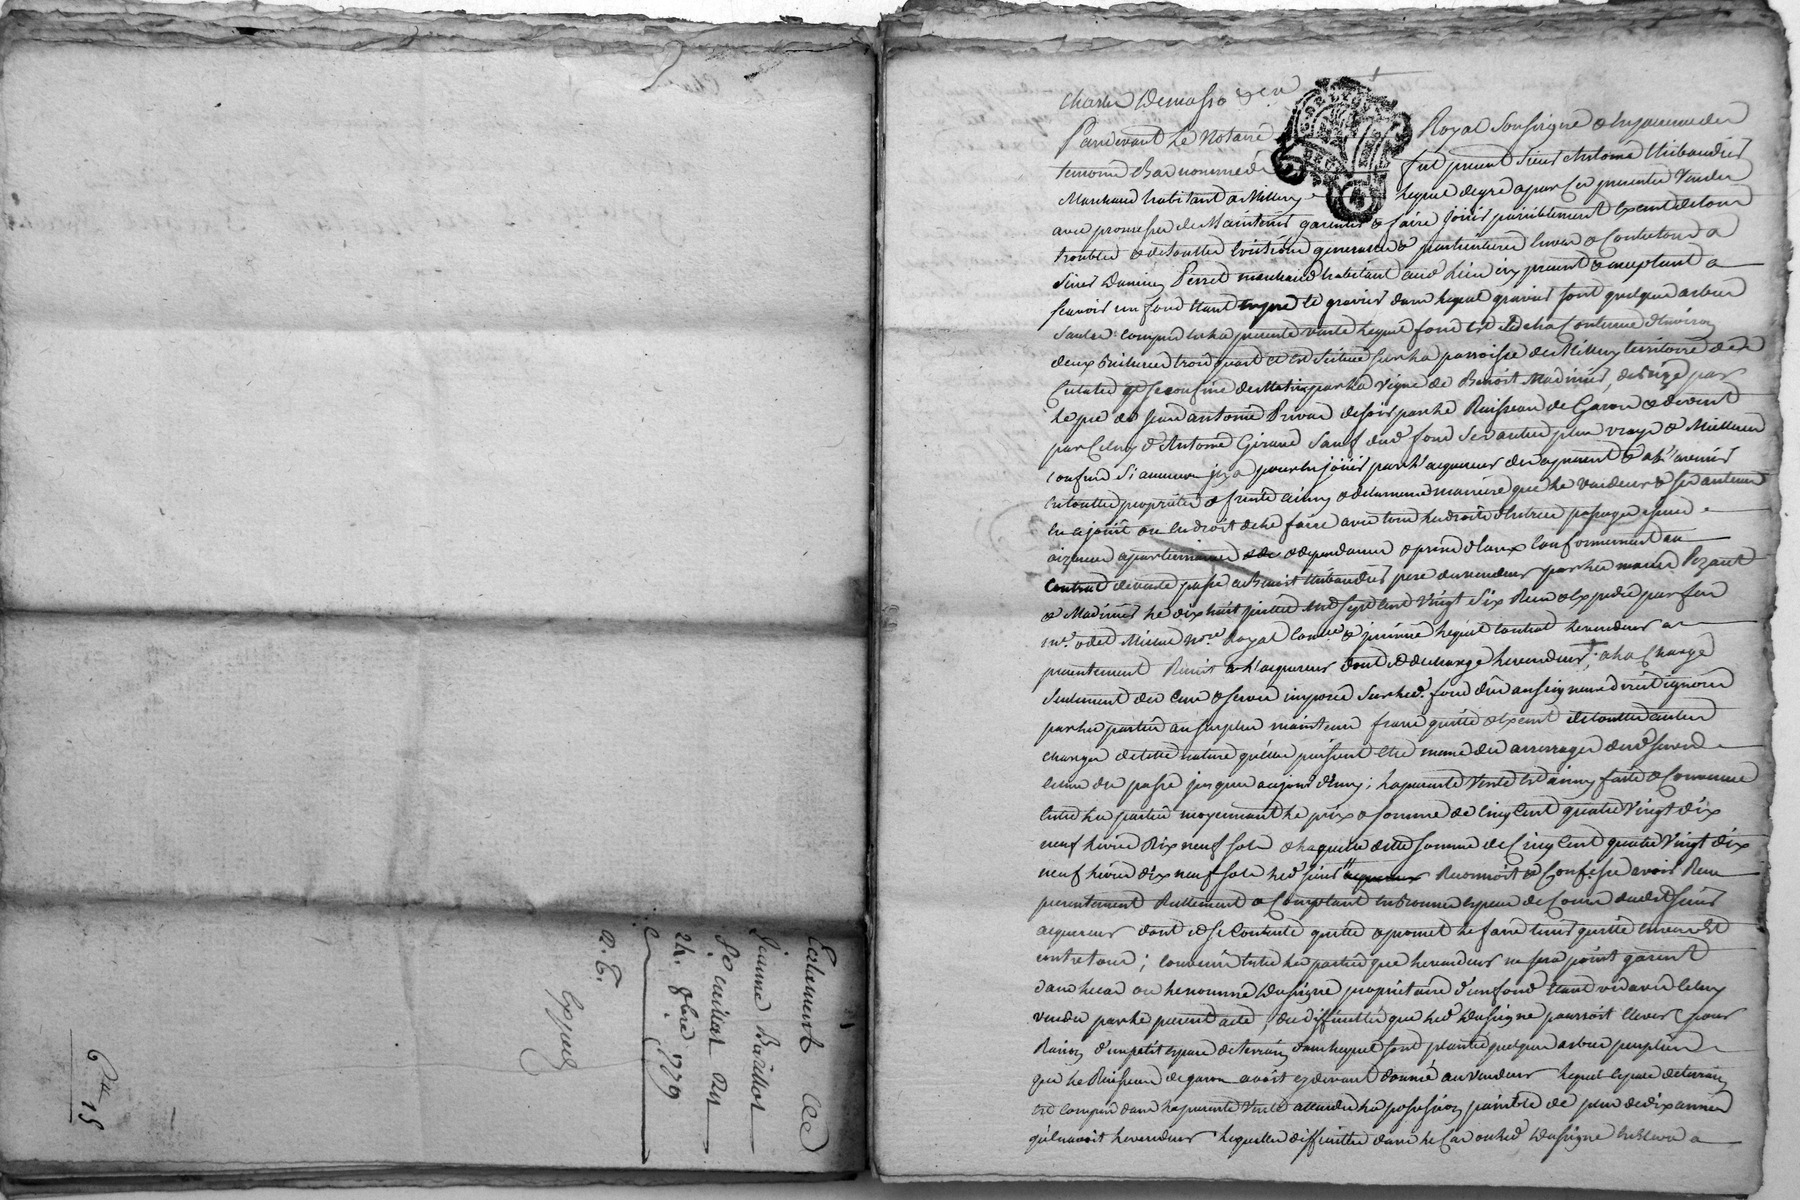 Testament de
Jeanne
So caillot du
24. 9bre 1779
a. C.
Exped
6 ₶ 15
Pardevant Le Notaire Royal Soussigné & en presence des
temoins cbas nommés fut present Sieur Antoine Thibaudier
Marchand habitant a Millery lequel de gre a par Ces presentes Vendu
avec promesse de Maintenir garentir & faire Jouir paisiblement Exent de tous
troubles & de touttes Evictions generalles & particulieres Envers & Contre tous a
Sieur Damien Perret marchand habitant aud Lieu icy present & acceptant a
Scavoir un fond gravier dans lequel gravier sont quelques arbres
Saules compris en la presente vente lequel fond est de la Contenue d'Environ
deux Bicherees trois quart et est Scitué sur la parroisse de Millery territoire de
qui se confine de Matin par la vigne de Benoit Madinier, de bize par
le pré de Jean antoine Privas de soir par le Ruisseau de Garon & de vent
par Celuy d'Antoine Girard Sauf dud fond Ses autres plus vrays & Meilleurs
confins Si aucuns y a pour en joüir par l'acquereur des apresent & a l'avenir
en toutte proprieté & ainsy & de la meme maniere que le Vendeur & ses auteurs
en a joüit ou eu droit de le faire avec tous les droits d'Entrée passage
aizances apartenances & dependances & prise d'Eaux Conformement au
Contrat de vente passé a Benoit Thibaudier pere du vendeur par les maries Pezant
& Madinier le dix huit juillet mil sept cent Vingt Six Recu & Expedié par feu
me. nore Royal lequel Contrat le vendeur a
presentement Remis a l'acquereur dont il decharge le vendeur; a la Charge
Seulement des Cens & servis imposés Sur led. fond dus au Seigneur direct ignoré
par les parties au surplus maintenu franc quitte & Exent de touttes autres
charges de telle nature qu'elles puissent etre meme des arrerages dud servis
du passé jusques aujourd'huy; la presente Vente est ainsy faitte & Convenue
Entre les parties moyennant le prix & somme de Cinq Cent quatre Vingt dix
neuf livres Dix neuf sols & laquelle ditte somme de Cinq Cent quatre Vingt dix
neuf livres dix neuf sols led sieur Reconnoit & Confesse avoir Recu
presentement Reellement & Comptant en bonnes especes de Cours dudit sieur
acquereur dont il se Contente quitte & promet le faire tenir quitte envers Et
contre tous; Convenu entre les parties que le vendeur ne sera point garent
dans le cas ou le nommé Dusigne proprietaire d'un fond celuy
vendu par le present acte, des difficultés que led Dusigne pourroit Elever pour
Raison d'un petit espace de terrain dans lequel sont plantés quelques arbres peupliers
que le Ruisseau de garon avoit cy devant donné au Vendeur lequel espace de terrain
est compris dans la presente Vente attendu la possession paisible de plus de dix années
qu'en avoit le vendeur lesquelles difficultés dans le Cas ou led Dusigne